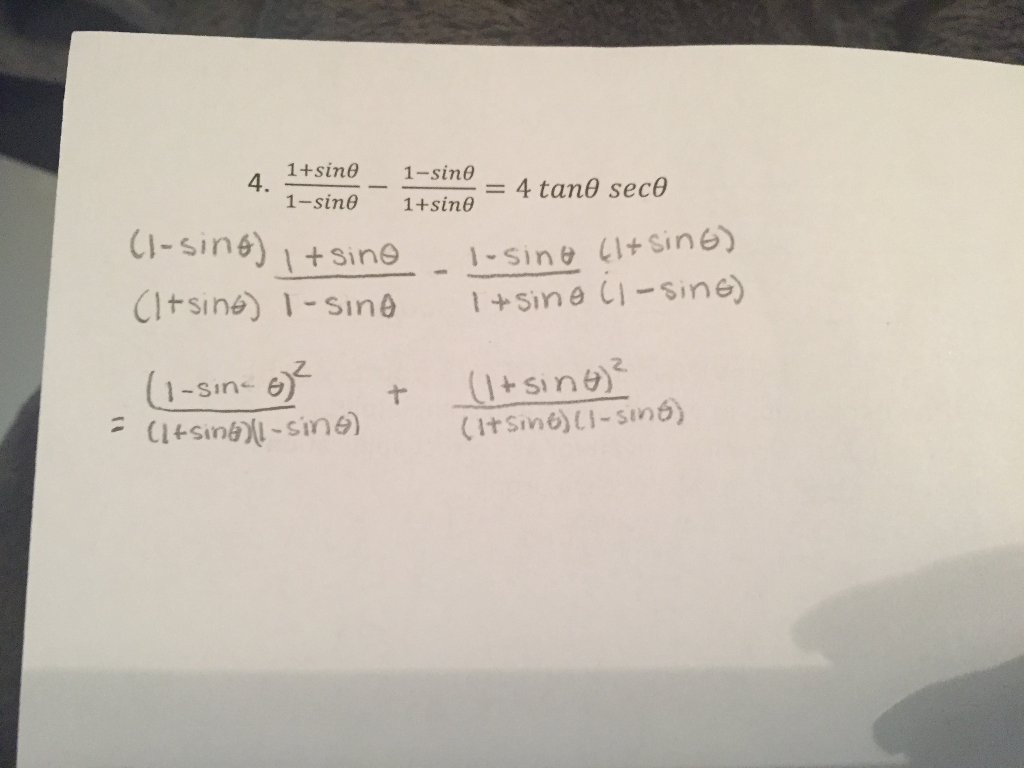 4. \frac{1+sinθ}{1−sinθ} − \frac{1−sinθ}{1+sinθ} = 4 tanθ secθ
\frac{(1-sinθ)}{(1+sinθ)} \frac{1+sinθ}{1-sinθ} - \frac{1-sinθ}{1+sinθ} \frac{(1+sinθ)}{(1-sinθ)}
= \frac{(1-sin θ)^2}{(1+sinθ)(1-sinθ)} + \frac{(1+sinθ)^2}{(1+sinθ)(1-sinθ)}